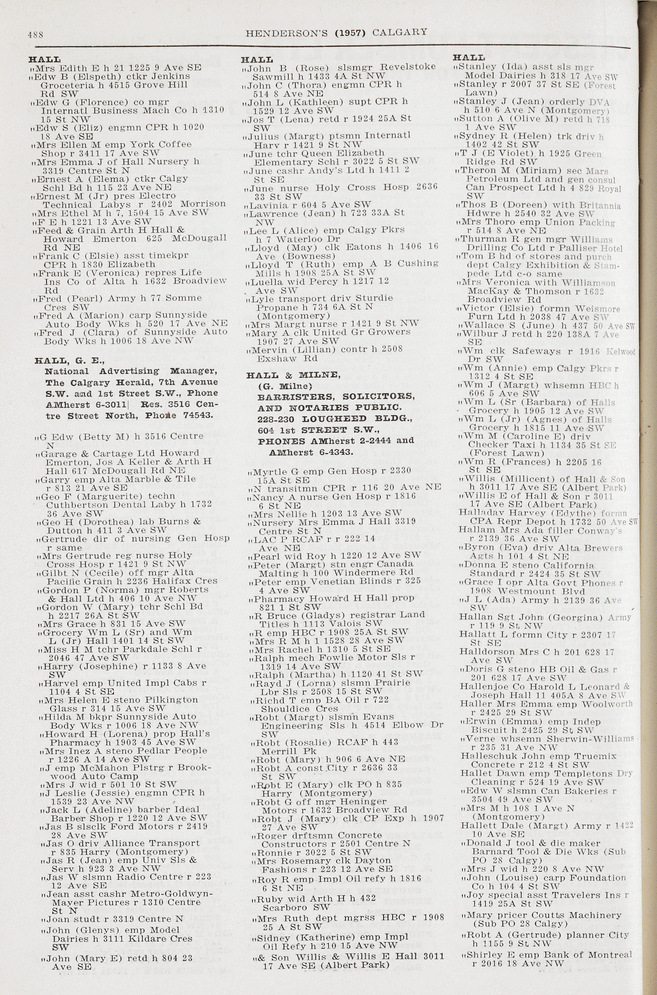 488
HENDERSON'S (1957) CALGARY
HALL
"Mrs Edith E h 21 1225 9 Ave SE
"Edw B (Elspeth) ctkr Jenkins
Groceteria h 4515 Grove Hill
Rd SW
"Edw G (Florence) co mgr
Internatl Business Mach Co h 1310
15 St NW
"Edw S (Eliz) engmn CPR h 1020
18 Ave SE
"Mrs Ellen M emp York Coffee
Shop r 3411 17 Ave SW
"Mrs Emma J of Hall Nursery h
3319 Centre St N
"Ernest A (Elema) ctkr Calgy
Schl Bd h 115 23 Ave NE
"Ernest M (Jr) pres Electro
Technical Labys r 2402 Morrison
"Mrs Ethel M h 7, 1504 15 Ave SW
"F E h 1221 13 Ave SW
"Feed & Grain Arth H Hall &
Howard Emerton 625 McDougall
Rd NE
"Frank C (Elsie) asst timekpr
CPR h 1830 Elizabeth
"Frank E (Veronica) repres Life
Ins Co of Alta h 1632 Broadview
Rd
"Fred (Pearl) Army h 77 Somme
Cres SW
"Fred A (Marion) carp Sunnyside
Auto Body Wks h 520 17 Ave NE
"Fred J (Clara) of Sunnyside Auto
Body Wks h 1006 18 Ave NW
HALL, G. E.,
National Advertising Manager,
The Calgary Herald, 7th Avenue
S.W. and 1st Street S.W., Phone
AMherst 6-3011; Res. 3516 Cen-
tre Street North, Phone 74543.
"G Edw (Betty M) h 3516 Centre
N
"Garage & Cartage Ltd Howard
Emerton, Jos A Keller & Arth H
Hall 617 McDougall Rd NE
"Garry emp Alta Marble & Tile
r 813 21 Ave SE
"Geo F (Marguerite) techn
Cuthbertson Dental Laby h 1732
36 Ave SW
"Geo H (Dorothea) lab Burns &
Dutton h 411 3 Ave SW
"Gertrude dir of nursing Gen Hosp
r same
"Mrs Gertrude reg nurse Holy
Cross Hosp r 1421 9 St NW
"Gilbt N (Cecile) off mgr Alta
Pacific Grain h 2236 Halifax Cres
"Gordon P (Norma) mgr Roberts
& Hall Ltd h 406 10 Ave NW
"Gordon W (Mary) tchr Schl Bd
h 2217 26A St SW
"Mrs Grace h 831 15 Ave SW
"Grocery Wm L (Sr) and Wm
L (Jr) Hall 1401 14 St SW
"Miss H M tchr Parkdale Schl r
2046 47 Ave SW
"Harry (Josephine) r 1133 8 Ave
SW
"Harvel emp United Impl Cabs r
1104 4 St SE
"Mrs Helen E steno Pilkington
Glass r 314 15 Ave SW
"Hilda M bkpr Sunnyside Auto
Body Wks r 1006 18 Ave NW
"Howard H (Lorena) prop Hall's
Pharmacy h 1903 45 Ave SW
"Mrs Inez A steno Pedlar People
r 1226 A 14 Ave SW
"J emp McMahon Plstrg r Brook-
wood Auto Camp
"Mrs J wid r 501 10 St SW
"J Leslie (Jessie) engmn CPR h
1539 23 Ave NW
"Jack L (Adeline) barber Ideal
Barber Shop r 1220 12 Ave SW
"Jas B slsclk Ford Motors r 2419
28 Ave SW
"Jas O driv Alliance Transport
r 835 Harry (Montgomery)
"Jas R (Jean) emp Univ Sls &
Serv h 923 3 Ave NW
"Jas W slsmn Radio Centre r 223
12 Ave SE
"Jean asst cashr Metro-Goldwyn-
Mayer Pictures r 1310 Centre
St N
"Joan studt r 3319 Centre N
"John (Glenys) emp Model
Dairies h 3111 Kildare Cres
SW
"John (Mary E) retd h 804 23
Ave SE
HALL
"John B (Rose) slsmgr Revelstoke
Sawmill h 1433 4A St NW
"John C (Thora) engmn CPR h
514 8 Ave NE
"John L (Kathleen) supt CPR h
1529 12 Ave SW
"Jos T (Lena) retd r 1924 25A St
SW
"Julius (Margt) ptsmn Internatl
Harv r 1421 9 St NW
"June tchr Queen Elizabeth
Elementary Schl r 3022 5 St SW
"June cashr Andy's Ltd h 1411 2
St SE
"June nurse Holy Cross Hosp 2636
33 St SW
"Lavinia r 604 5 Ave SW
"Lawrence (Jean) h 723 33A St
NW
"Lee L (Alice) emp Calgy Pkrs
h 7 Waterloo Dr
"Lloyd (May) clk Eatons h 1406 16
Ave (Bowness)
"Lloyd T (Ruth) emp A B Cushing
Mills h 1908 25A St SW
"Luella wid Percy h 1217 12
Ave SW
"Lyle transport driv Sturdie
Propane h 734 6A St N
(Montgomery)
"Mrs Margt nurse r 1421 9 St NW
"Mary A clk United Gr Growers
1907 27 Ave SW
"Mervin (Lillian) contr h 2508
Exshaw Rd
HALL & MILNE,
(G. Milne)
BARRISTERS, SOLICITORS,
AND NOTARIES PUBLIC.
228-230 LOUGHEED BLDG.,
604 1st STREET S.W.,
PHONES AMherst 2-2444 and
AMherst 6-4343.
"Myrtle G emp Gen Hosp r 2330
15A St SE
"N transitmn CPR r 116 20 Ave NE
"Nancy A nurse Gen Hosp r 1816
6 St NE
"Mrs Nellie h 1203 13 Ave SW
"Nursery Mrs Emma J Hall 3319
Centre St N
"LAC P RCAF r r 222 14
Ave NE
"Pearl wid Roy h 1220 12 Ave SW
"Peter (Margt) stn engr Canada
Malting h 100 Windermere Rd
"Peter emp Venetian Blinds r 325
4 Ave SW
"Pharmacy Howard H Hall prop
821 1 St SW
"R Bruce (Gladys) registrar Land
Titles h 1113 Valois SW
"R emp HBC r 1908 25A St SW
"Mrs R M h 1 1528 28 Ave SW
"Mrs Rachel h 1310 5 St SE
"Ralph mech Fowlie Motor Sls r
1319 14 Ave SW
"Ralph (Martha) h 1120 41 St SW
"Rayd J (Lorna) slsmn Prairie
Lbr Sls r 2508 15 St SW
"Richd T emp BA Oil r 722
Shouldice Cres
"Robt (Margt) slsmn Evans
Engineering Sls h 4514 Elbow Dr
SW
"Robt (Rosalie) RCAF h 443
Merrill Pk
"Robt (Mary) h 906 6 Ave NE
"Robt A const City r 2636 33
St SW
"Robt E (Mary) clk PO h 835
Harry (Montgomery)
"Robt G off mgr Heninger
Motors r 1632 Broadview Rd
"Robt J (Mary) clk CP Exp h 1907
27 Ave SW
"Roger drftsmn Concrete
Constructors r 2501 Centre N
"Ronnie r 3022 5 St SW
"Mrs Rosemary clk Dayton
Fashions r 223 12 Ave SE
"Roy R emp Imp Oil refy h 1816
6 St NE
"Ruby wid Arth H h 432
Scarboro SW
"Mrs Ruth dept mgrss HBC r 1908
25 A St SW
"Sidney (Katherine) emp Impl
Oil Refy h 210 15 Ave NW
"& Son Willis & Willis E Hall 3011
17 Ave SE (Albert Park)
HALL
"Stanley (Ida) asst sls mgr
Model Dairies h 318 17 Ave SW
"Stanley r 2007 37 St SE (Forest
Lawn)
"Stanley J (Jean) orderly DVA
h 510 6 Ave N (Montgomery)
"Sutton A (Olive M) retd h 718
1 Ave SW
"Sydney R (Helen) trk driv h
1402 42 St SW
"T J (E Violet) h 1925 Green
Ridge Rd SW
"Theron M (Miriam) sec Mars
Petroleum Ltd and gen consul
Can Prospect Ltd h 4 829 Royal
SW
"Thos B (Doreen) with Britannia
Hdwre h 2540 32 Ave SW
"Mrs Thoro emp Union Packing
r 514 8 Ave NE
"Thurman R gen mgr Williams
Drilling Co Ltd r Palliser Hotel
"Tom B hd of stores and purch
dept Calgy Exhibition & Stam-
pede Ltd c-o same
"Mrs Veronica with Williamson
MacKay & Thomson r 1632
Broadview Rd
"Victor (Elsie) formn Weismore
Furn Ltd h 2038 47 Ave SW
"Wallace S (June) h 437 50 Ave SW
"Wilbur J retd h 220 138A 7 Ave
SE
"Wm clk Safeways r 1916 Kelwood
Dr SW
"Wm (Annie) emp Calgy Pkrs r
1312 4 St SE
"Wm J (Margt) whsemn HBC h
606 5 Ave SW
"Wm L (Sr (Barbara) of Halls
Grocery h 1905 12 Ave SW
"Wm L (Jr) (Agnes) of Halls
Grocery h 1815 11 Ave SW
"Wm M (Caroline E) driv
Checker Taxi h 1134 35 St SE
(Forest Lawn)
"Wm R (Frances) h 2205 16
St SE
"Willis (Millicent) of Hall & Son
h 3011 17 Ave SE (Albert Park)
"Willis E of Hall & Son r 3011
17 Ave SE (Albert Park)
Halladay Harvey (Edythe) formn
CPA Repr Depot h 1732 50 Ave SW
Hallam Mrs Ada filler Conway's
r 2139 36 Ave SW
"Byron (Eva) driv Alta Brewers
Agts h 101 4 St NE
"Donna E steno California
Standard r 2424 35 St SW
"Grace I opr Alta Govt Phones r
1908 Westmount Blvd
"J L (Ada) Army h 2139 36 Ave
SW
Hallan Sgt John (Georgina) Army
r 119 9 St NW
Hallatt L formn City r 2307 17
St SE
Halldorson Mrs C h 201 628 17
Ave SW
"Doris G steno HB Oil & Gas r
201 628 17 Ave SW
Hallenjoe Co Harold L Leonard &
Joseph Hall 11 405A 8 Ave SW
Haller Mrs Emma emp Woolworth
r 2425 29 St SW
"Erwin (Emma) emp Indep
Biscuit h 2425 29 St SW
"Verne whsemn Sherwin-Williams
r 235 31 Ave NW
Halleschuk John emp Truemix
Concrete r 212 4 St SW
Hallet Dawn emp Templetons Dry
Cleaning r 524 19 Ave SW
"Edw W slsmn Can Bakeries r
3504 49 Ave SW
"Mrs M h 108 1 Ave N
(Montgomery)
Hallett Dale (Margt) Army r 1422
10 Ave SE
"Donald J tool & die maker
Barnard Tool & Die Wks (Sub
PO 28 Calgy)
"Mrs J wid h 220 8 Ave NW
"John (Louise) carp Foundation
Co h 104 4 St SW
"Joy special asst Travelers Ins r
1419 25A St SW
"Mary pricer Coutts Machinery
(Sub PO 28 Calgy)
"Robt A (Gertrude) planner City
h 1155 9 St NW
"Shirley E emp Bank of Montreal
r 2016 18 Ave NW